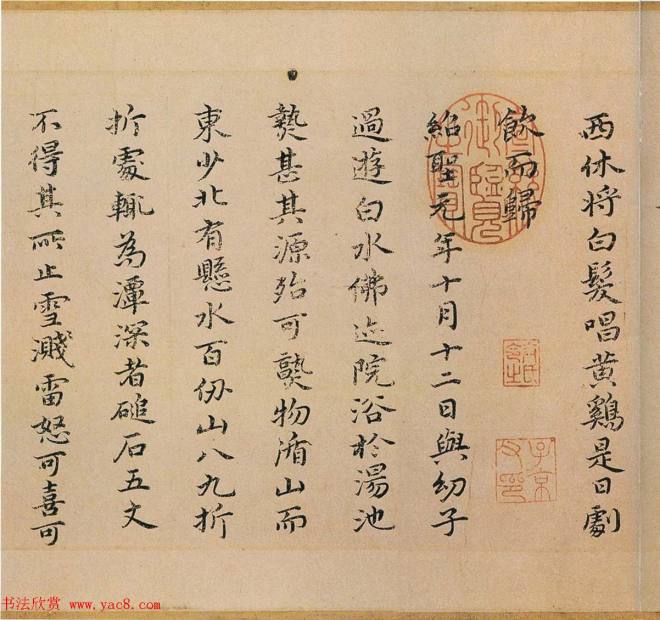 西休将白髮唱黄鷄是日劇
飲而歸
紹聖元年十月十二日與幼子
過遊白水佛迹院浴於湯池
熱甚其源殆可熟物循山而
東少北有懸水百仞山八九折
折處輒為潭深者磓石五丈
不得其所止雪濺雷怒可喜可
子京
书法欣赏 www.yac8.com